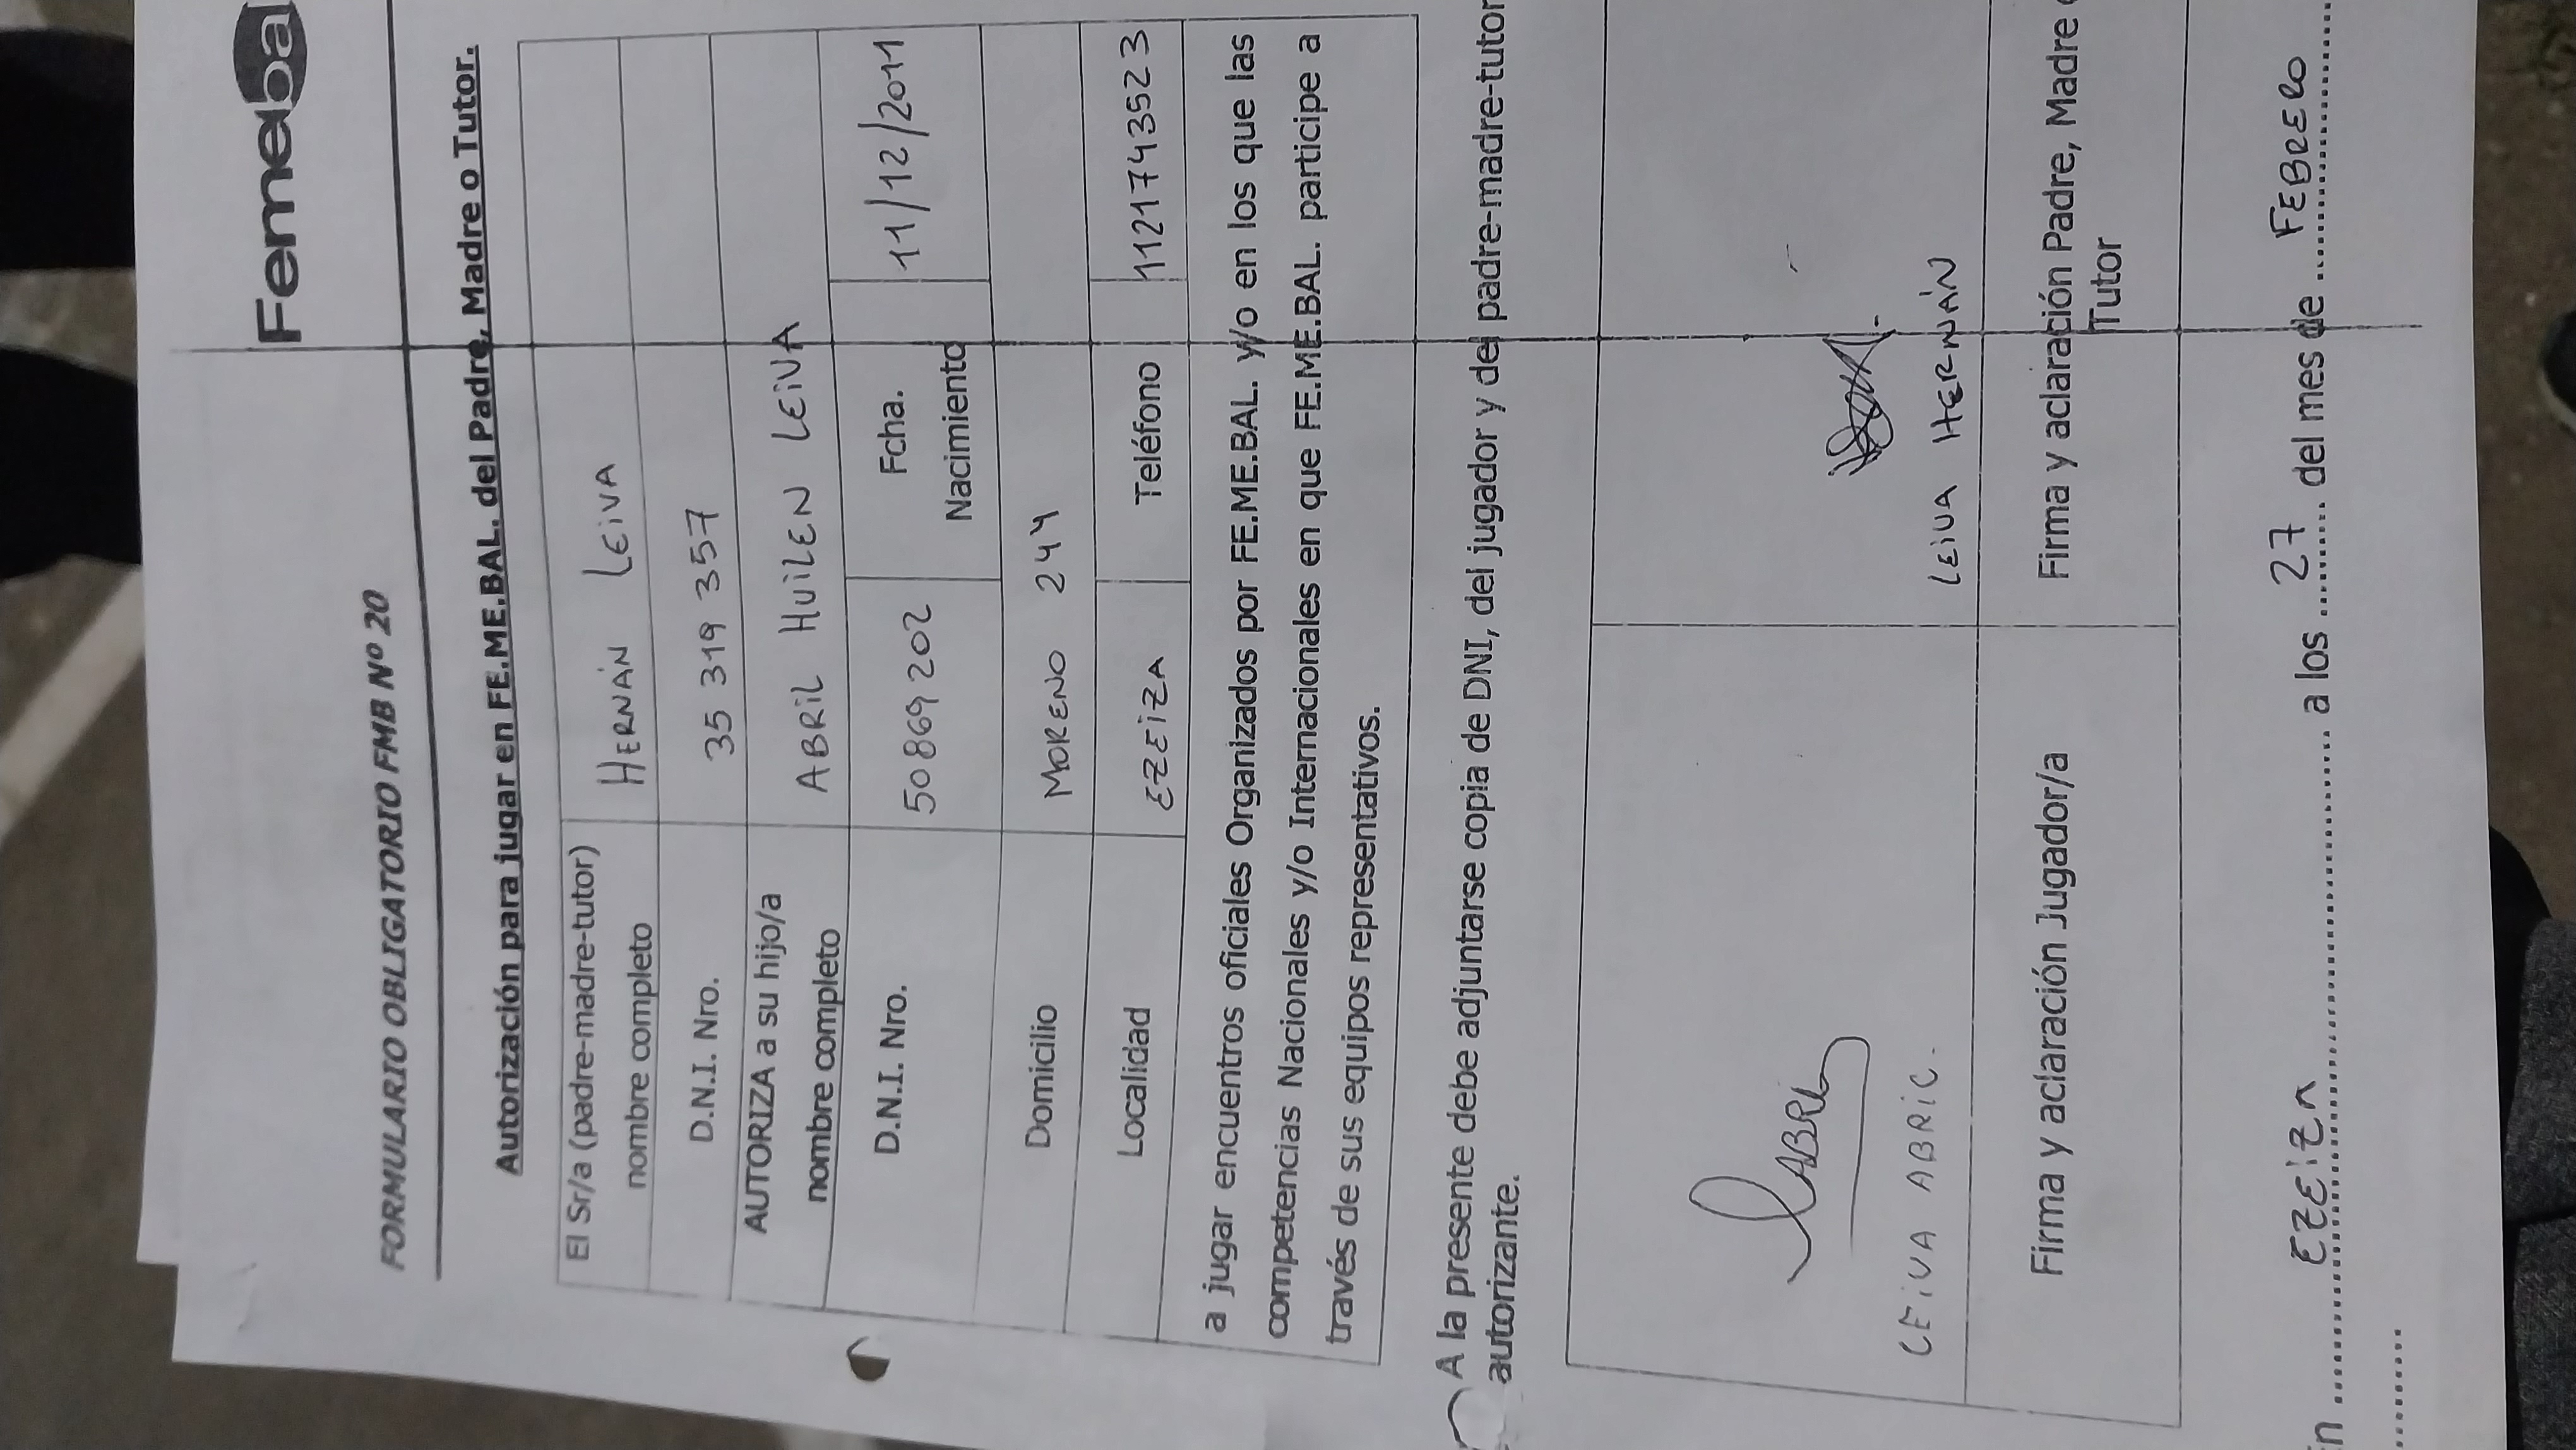 Femeba
FORMULARIO OBLIGATORIO FMB Nº 20
Autorización para jugar en FE.ME.BAL. del Padre, Madre o Tutor.
El Sr/a (padre-madre-tutor) nombre completo HERNÁN LEIVA
D.N.I. Nro. 35 319 357
AUTORIZA a su hijo/a nombre completo ABRIL HUILEN LEIVA
D.N.I. Nro. 50869202 Fcha. Nacimiento 11/12/2011
Domicilio MORENO 244
Localidad EZEIZA Teléfono 1121743523
a jugar encuentros oficiales Organizados por FE.ME.BAL. y/o en los que las
competencias Nacionales y/o Internacionales en que FE.ME.BAL. participe a
través de sus equipos representativos.
A la presente debe adjuntarse copia de DNI, del jugador y del padre-madre-tutor
autorizante.
LEIVA ABRIL.
LEIVA HERNÁN
Firma y aclaración Jugador/a
Firma y aclaración Padre, Madre
Tutor
n ........ EZEIZA ........ a los ..... 27 ..... del mes de ..... FEBRERO .....